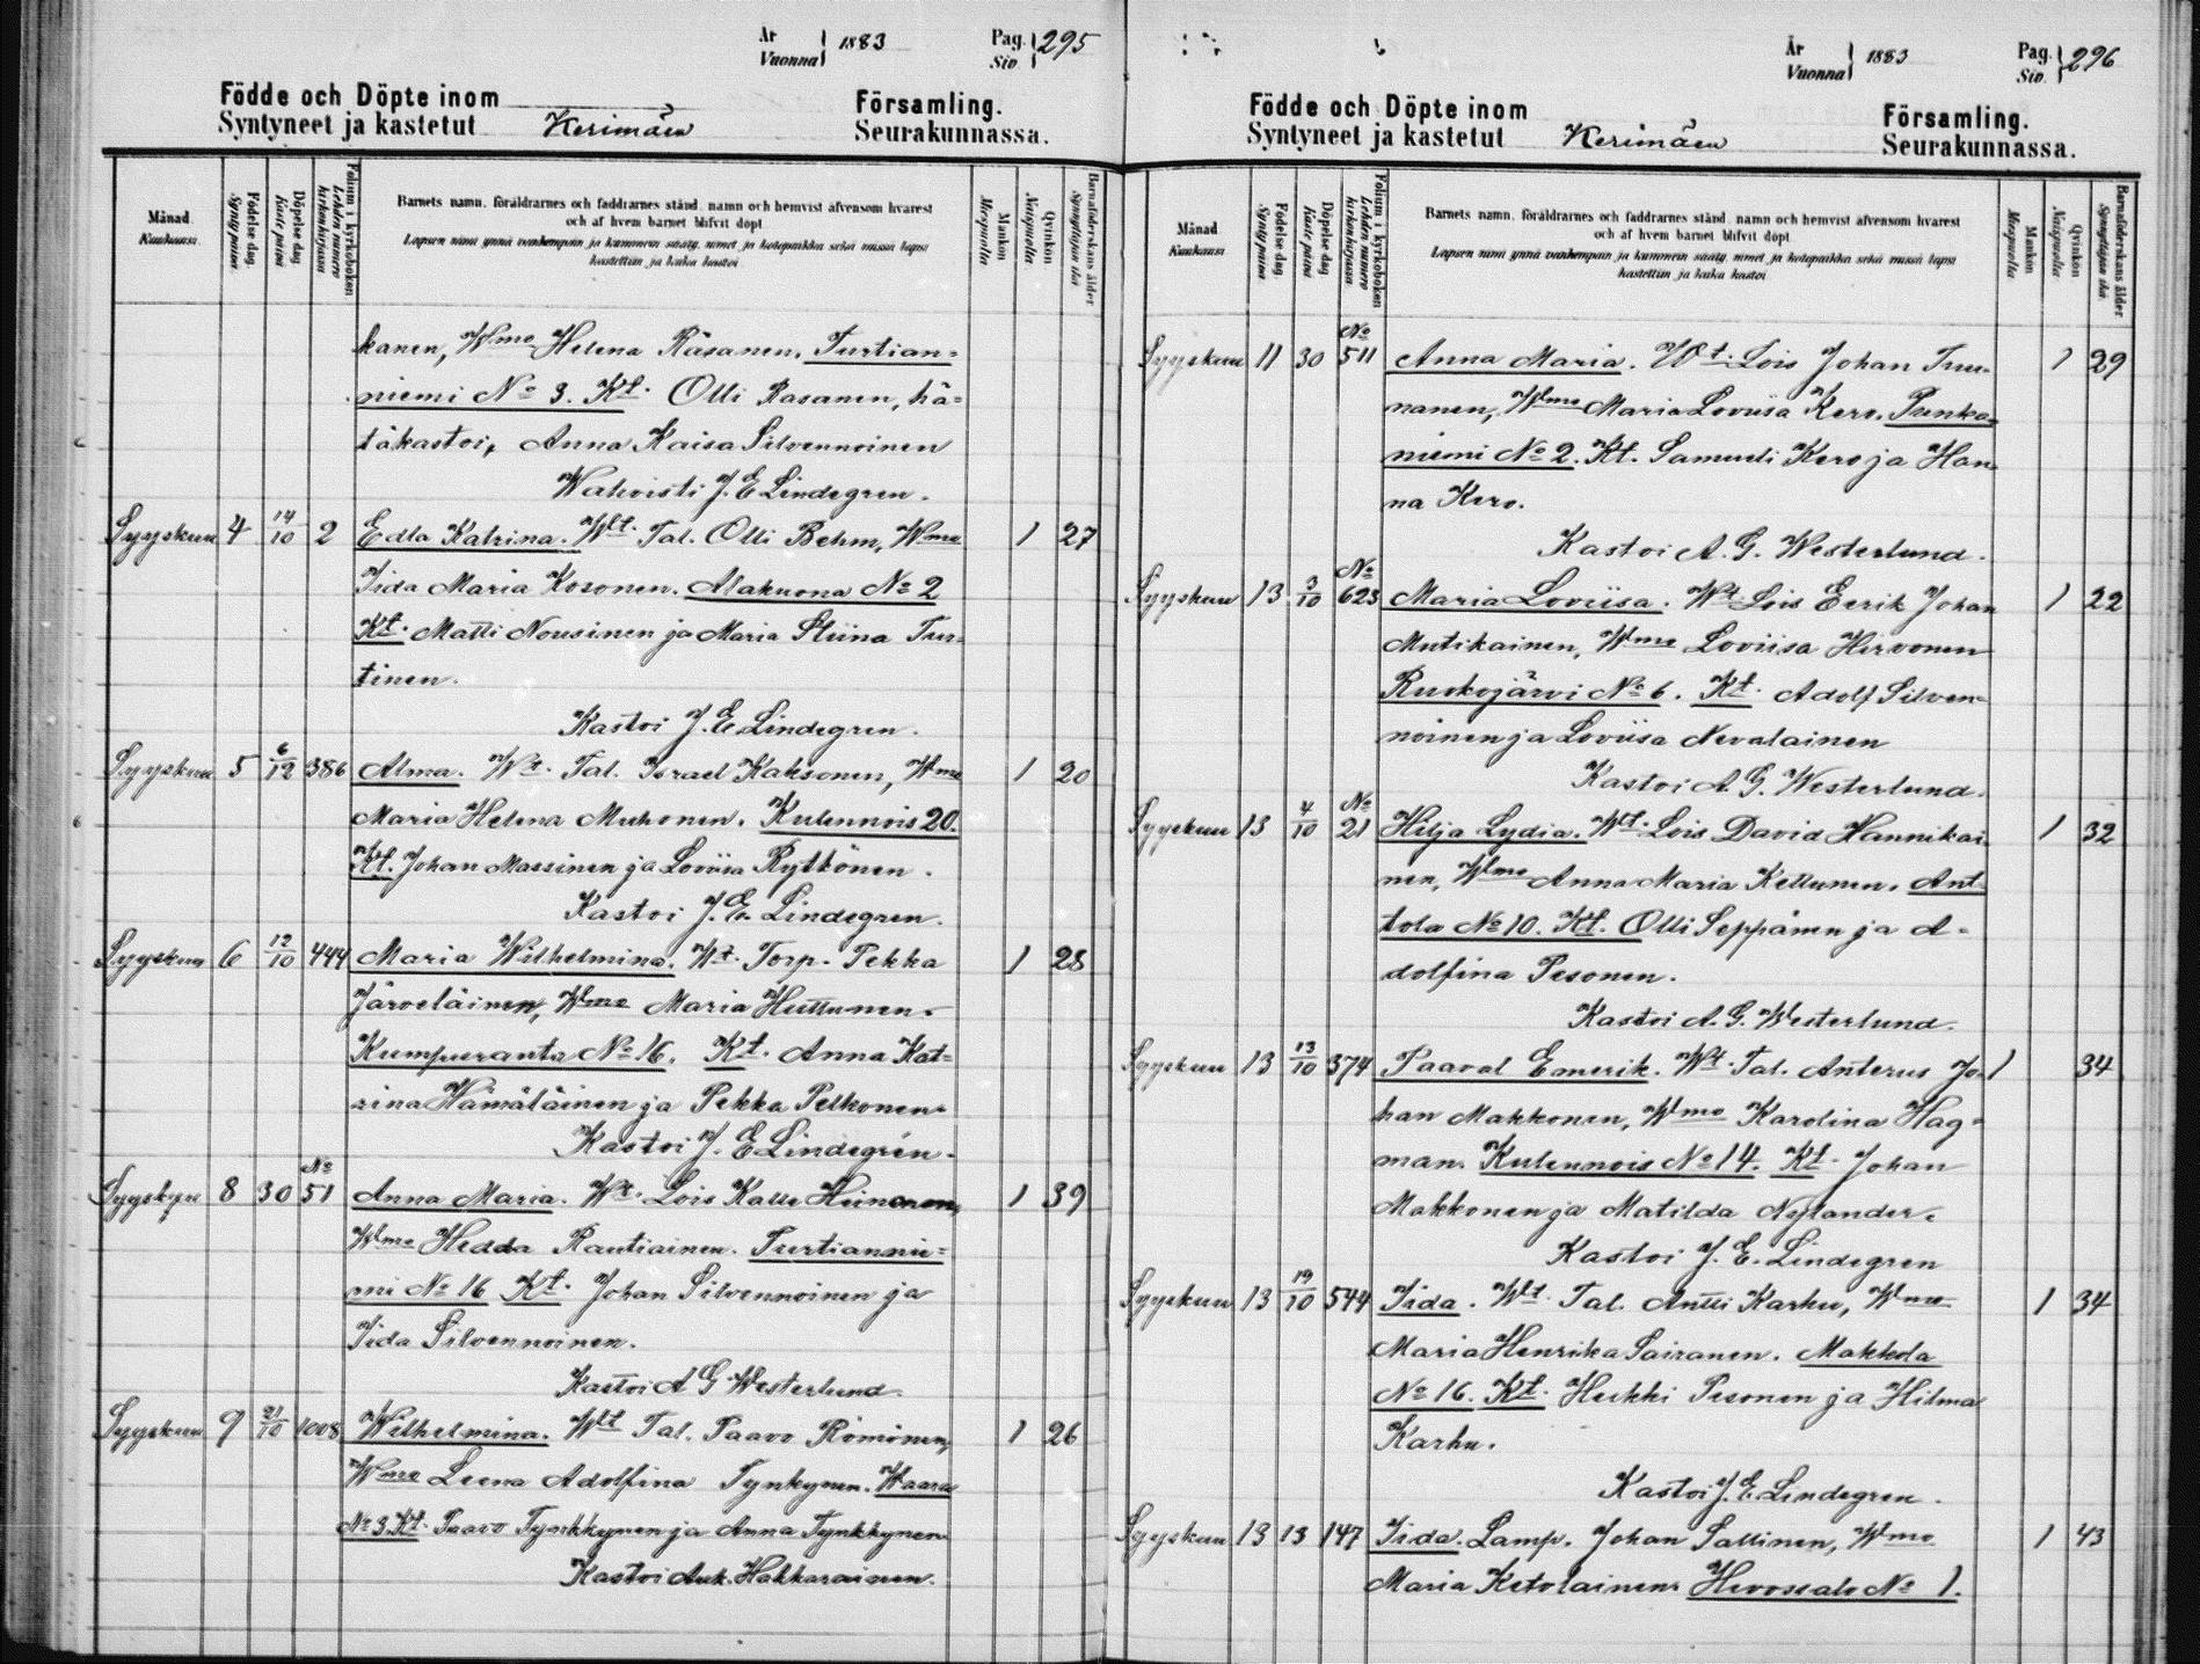 År
Vuonna
1883
Pag.
Siv.
295
Födde och Döpte inom
Syntyneet ja kastetut
Kerimäen
Församling.
Seurakunnassa.
Månad
Kuukausi
Födelse dag.
Synty päivä
Döpelse dag
Kaste päivä
Folium i kyrkoboken
Lehden numero kirkonkirjassa
Barnets namn, föräldrarnes och faddrarnes stånd, namn och hemvist äfvensom hvarest
och af hvem barnet blifvit döpt
Lapsen nimi ynnä vanhempain ja kummein sääty, nimet ja kotopaikka sekä missä lapsi
kastettiin ja kuka kastoi
Mankön
Miespuolia
Qvinkön
Naispuolia
Barnaföderskans ålder
Synnyttäjän ikä
kanen, Wmo Helena Räsanen. Turtian=
niemi No 3. Kt. Olli Rasanen, hä=
täkastoi, Anna Kaisa Silvennoinen
Wahvisti J. E. Lindegren.
Syyskuu 4 14/10 2 Edla Katrina. Wt. Tal. Olli Behm, Wmo 1 27
Iida Maria Kosonen. Alakuona No 2
Kt. Matti Nousinen ja Maria Stiina Tur=
tinen.
Kastoi J. E. Lindegren.
Syyskuu 5 6/12 386 Alma. Wt. Tal. Israel Kaksonen, Wmo 1 20
Maria Helena Muhonen. Kulennois 20.
Kt. Johan Massinen ja Loviisa Rytkönen.
Kastoi J. E. Lindegren.
Syyskuu 6 12/10 444 Maria Wilhelmina. Wt. Torp. Pekka 1 28
Järveläinen, Wmo Maria Huttunen.
Kumpuranta No 16. Kt. Anna Kat=
rina Hämäläinen ja Pekka Pelkonen.
Kastoi J. E. Lindegren.
Syyskuu 8 30 No 51 Anna Maria. Wt. Lois Kalle Heinonen, 1 39
Wmo Hedda Rautiainen. Turtiannie=
mi No 16 Kt. Johan Silvennoinen ja
Iida Silvennoinen.
Kastoi A G Westerlund.
Syyskuu 9 21/10 1008 Wilhelmina. Wt Tal. Paavo Römönen, 1 26
Wmo Leena Adolfina Tynkynen. Waara
No 3 Kt. Paavo Tynkkynen ja Anna Tynkkynen
Kastoi Auk. Hakkarainen.
År
Vuonna
1883
Pag.
Siv.
296
Födde och Döpte inom
Syntyneet ja kastetut
Kerimäen
Församling.
Seurakunnassa.
Månad
Kuukausi
Födelse dag
Synty päivä
Döpelse dag
Kaste päivä
Folium i kyrkoboken
Lehden numero kirkonkirjassa
Barnets namn, föräldrarnes och faddrarnes stånd, namn och hemvist äfvensom hvarest
och af hvem barnet blifvit döpt
Lapsen nimi ynnä vanhempain ja kummein sääty, nimet ja kotopaikka sekä missä lapsi
kastettiin ja kuka kastoi
Mankön
Miespuolia
Qvinkön
Naispuolia
Barnaföderskans ålder
Synnyttäjän ikä
Syyskuu 11 30 No 511 Anna Maria. Wt. Lois Johan Tuu- 1 29
nanen, Wmo Maria Loviisa Kero. Punka=
niemi No 2. Kt. Samueli Kero ja Han
na Kero.
Kastoi A. G. Westerlund.
Syyskuu 13 3/10 No 623 Maria Loviisa. Wt. Lois Eerik Johan 1 22
Mutikainen, Wmo Loviisa Hirvonen
Ruokojärvi No 6. Kt. Adolf Silven=
noinen ja Loviisa Nevalainen
Kastoi A. G. Westerlund.
Syyskuu 13 4/10 No 21 Hilja Lydia. Wt. Lois David Hannikai 1 32
nen, Wmo Anna Maria Kettunen. Ant
tola No 10. Kt. Olli Seppänen ja A-
dolfina Pesonen.
Kastoi A. G. Westerlund.
Syyskuu 13 13/10 374 Paaval Emerik. Wt. Tal. Anterus Jo- 1 34
han Makkonen, Wmo Karolina Hag=
man. Kulennois No 14. Kt. Johan
Makkonen ja Matilda Nylander.
Kastoi J. E. Lindegren
Syyskuu 13 19/10 544 Iida. Wt. Tal. Antti Karhu, Wmo 1 34
Maria Henrika Sairanen. Makkola
No 16. Kt. Heikki Pesonen ja Hilma
Karhu.
Kastoi J. E. Lindegren.
Syyskuu 13 13 147 Iida. Lamp. Johan Sallinen, Wmo 1 43
Maria Ketolainen. Hevossalo No 1.